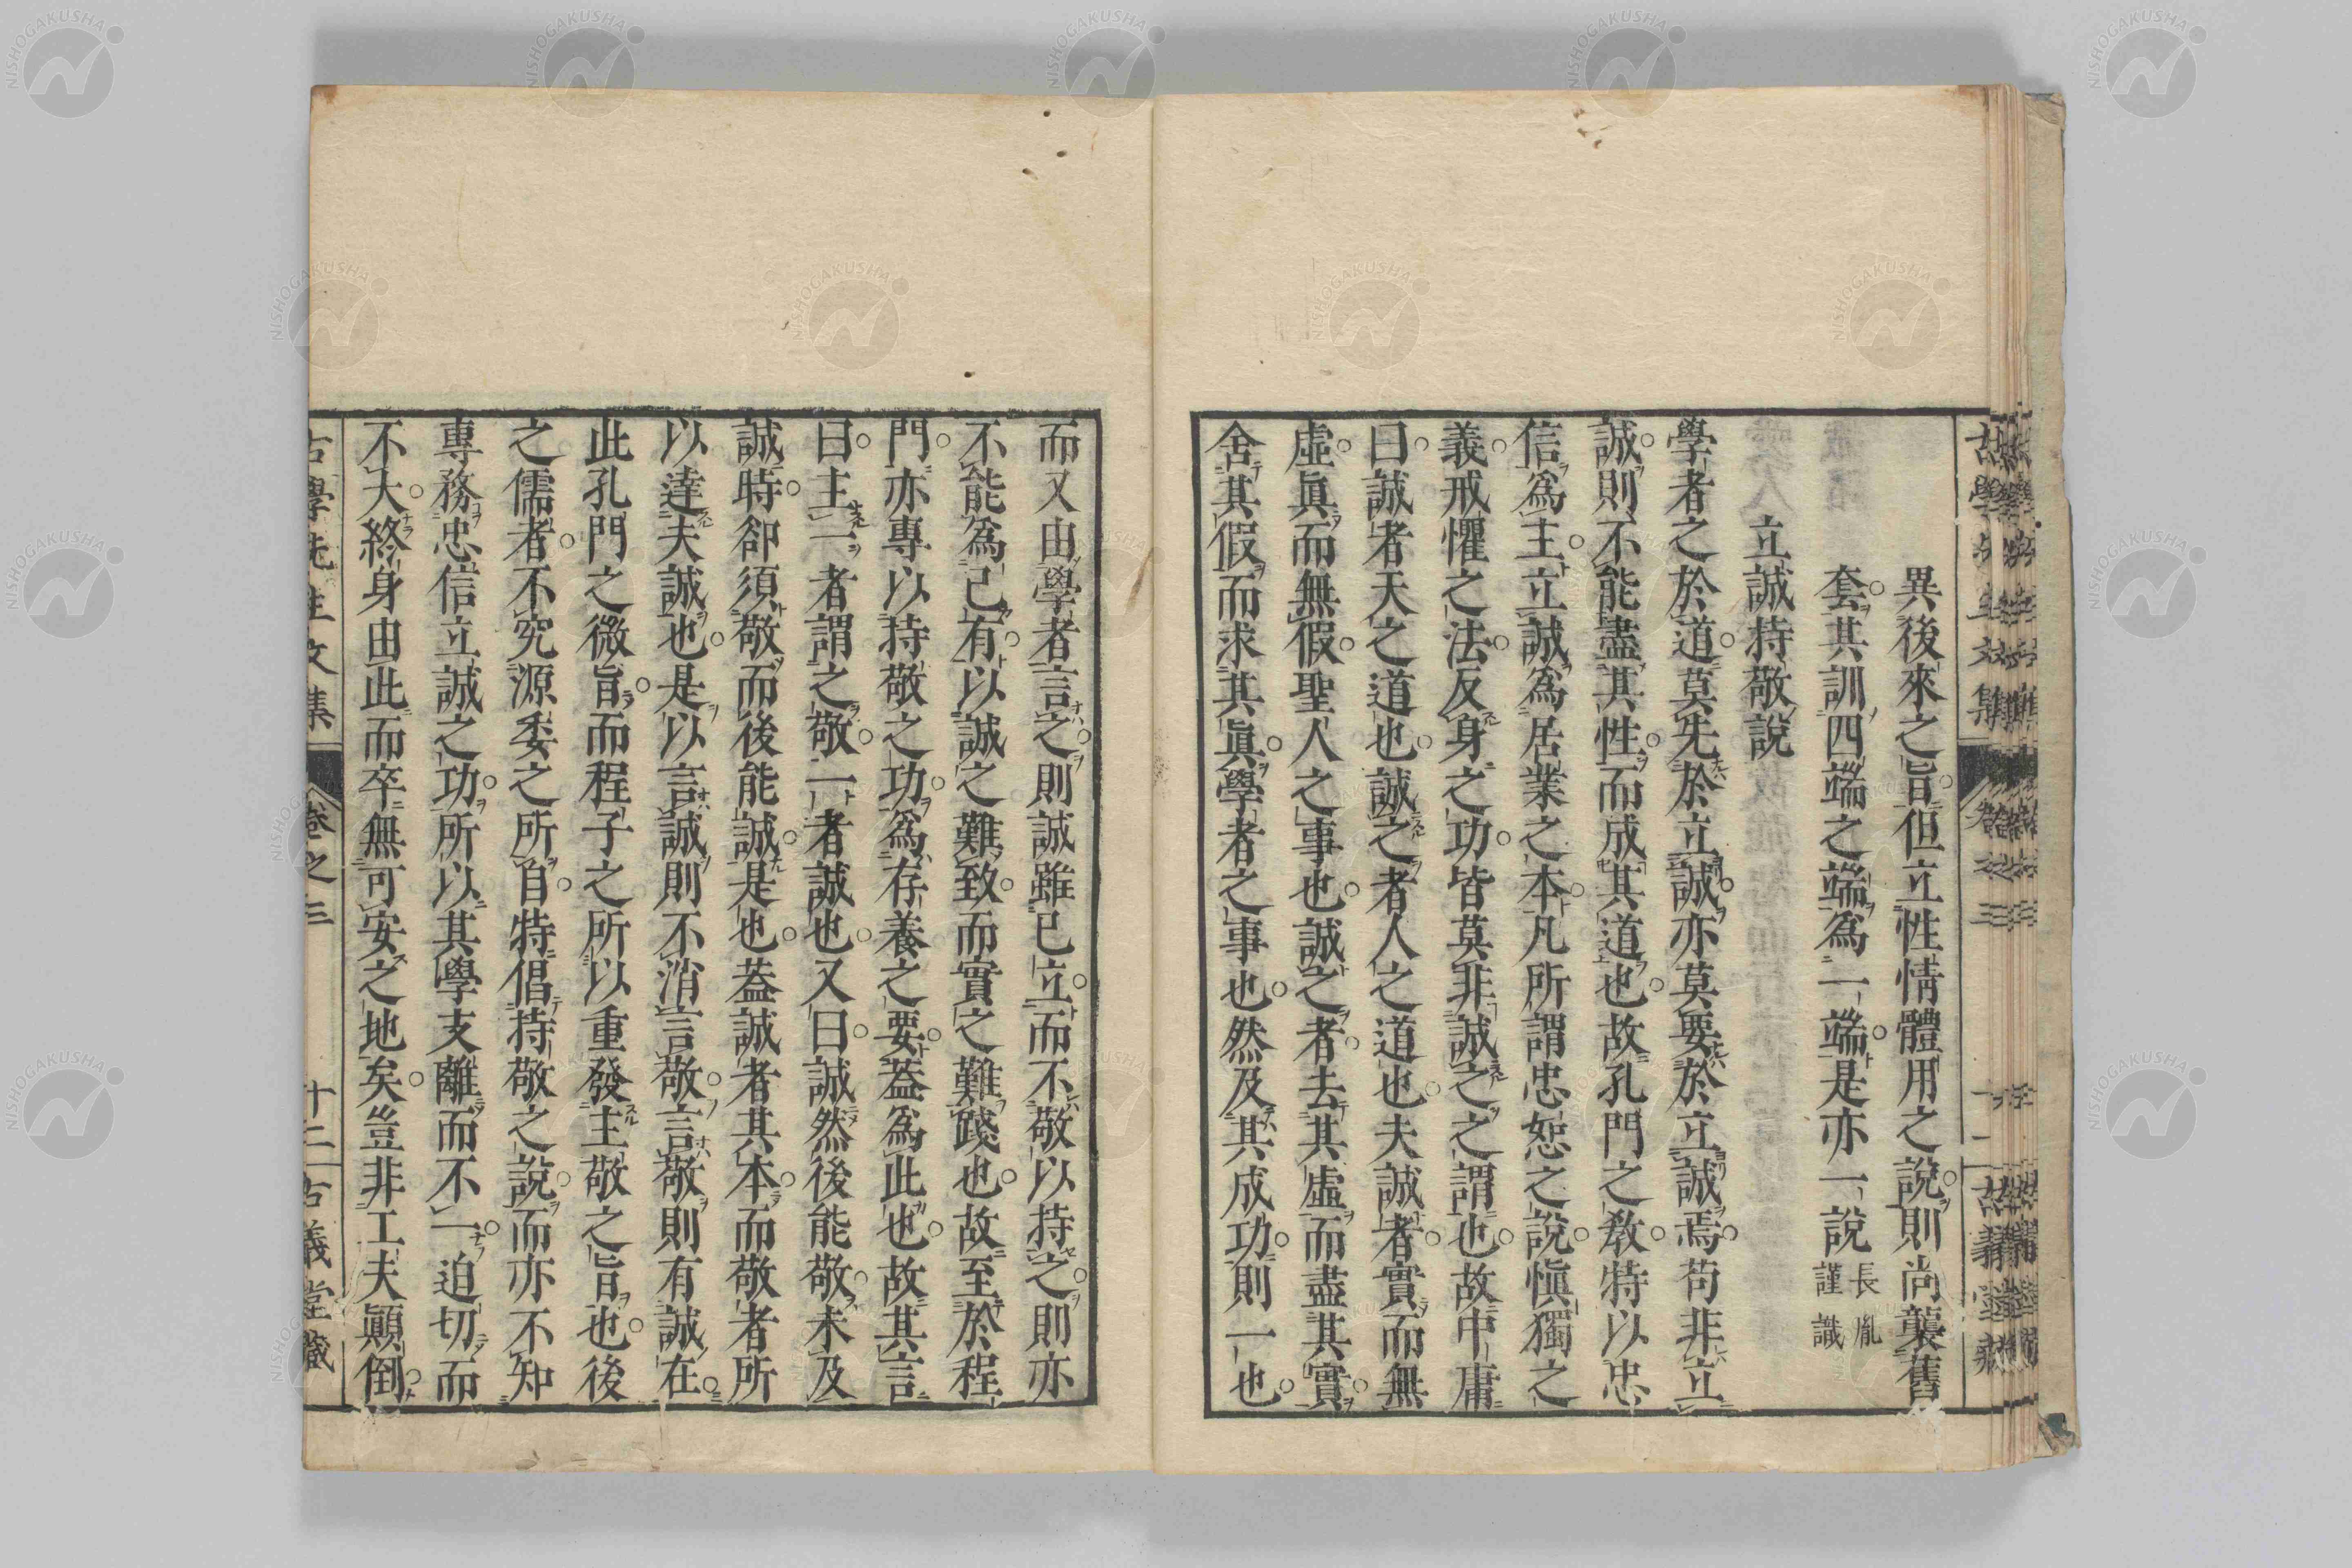 異後來之旨但立性情體用之說則尚襲舊
套其訓四端之端爲一端是亦一說 長胤謹識
立誠持敬說
學者之於道莫先於立誠亦莫要於立誠焉苟非立
誠則不能盡其性而成其道也故孔門之敎特以忠
信爲主立誠爲居業之本凡所謂忠恕之說愼獨之
義戒懼之法反身之功皆莫非誠之之謂也故中庸
曰誠者天之道也誠之者人之道也夫誠者實而無
虛眞而無假聖人之事也誠之者去其虛而盡其實
舍其假而求其眞學者之事也然及其成功則一也
而又由學者言之則誠雖已立而不敬以持之則亦
不能爲己有以誠之難致而實之難踐也故至於程
門亦專以持敬之功爲存養之要蓋爲此也故其言
曰主一者謂之敬一者誠也又曰誠然後能敬未及
誠時卻須敬而後能誠是也蓋誠者其本而敬者所
以達夫誠也是以言誠則不消言敬言敬則有誠在
此孔門之微旨而程子之所以重發主敬之旨也後
之儒者不究源委之所自特倡持敬之說而亦不知
專務忠信立誠之功所以其學支離而不一迫切而
不大終身由此而卒無可安之地矣豈非工夫顚倒
古學先生文集 卷之三 十二 古義堂藏
NISHOGAKUSHA